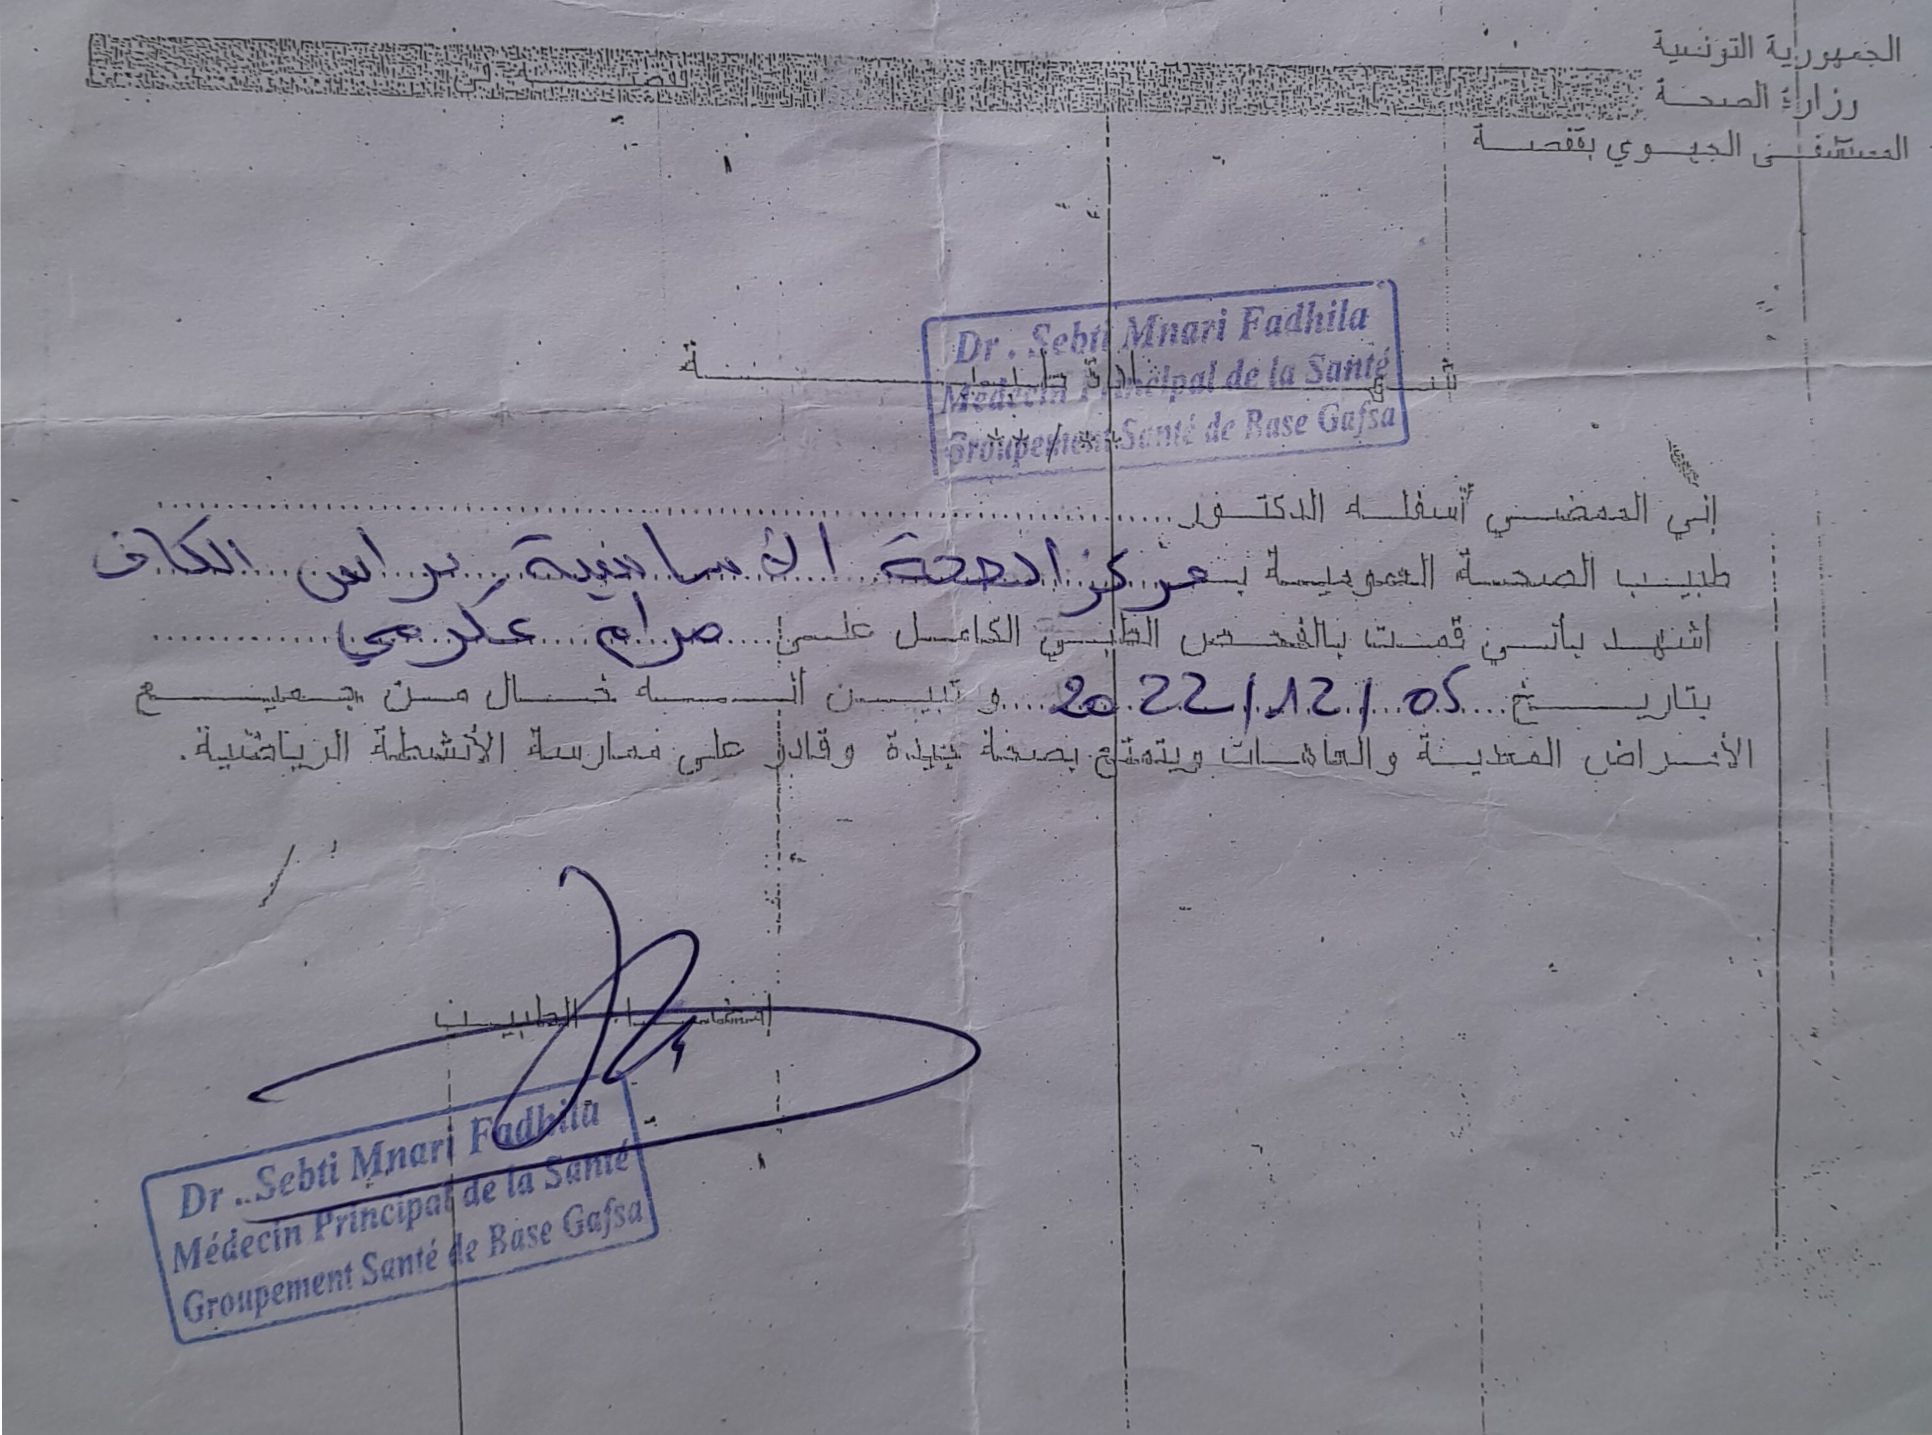 الجمهورية التونسية
وزارة الصحـــة
المستشفـــى الجهـوي بقفصـــة
قفصـــة في
Dr. Sebti Mnari Fadhila
Médecin Principal de la Santé
Groupement Santé de Base Gafsa
شهـــــادة طبيـــــة
**/**
إني الممضــي أسفلــه الدكتــور
طبيـب الصحـة العموميـة بـمركز الصحة الأساسية براس الكاف
اشهـد بأنـي قمـت بالفحـص الطبـي الكامـل علـى مرام عكرمي
بتاريـــخ 05/12/2022 وتبيـــن أنـــه خـــال مـــن جميـــع
الأمـراض المعديـة والعاهـات ويتمتع بصحـة جيدة وقادر على ممارسة الأنشطة الرياضية.
إمضـــاء الطبيـــب
Dr. Sebti Mnari Fadhila
Médecin Principal de la Santé
Groupement Santé de Base Gafsa